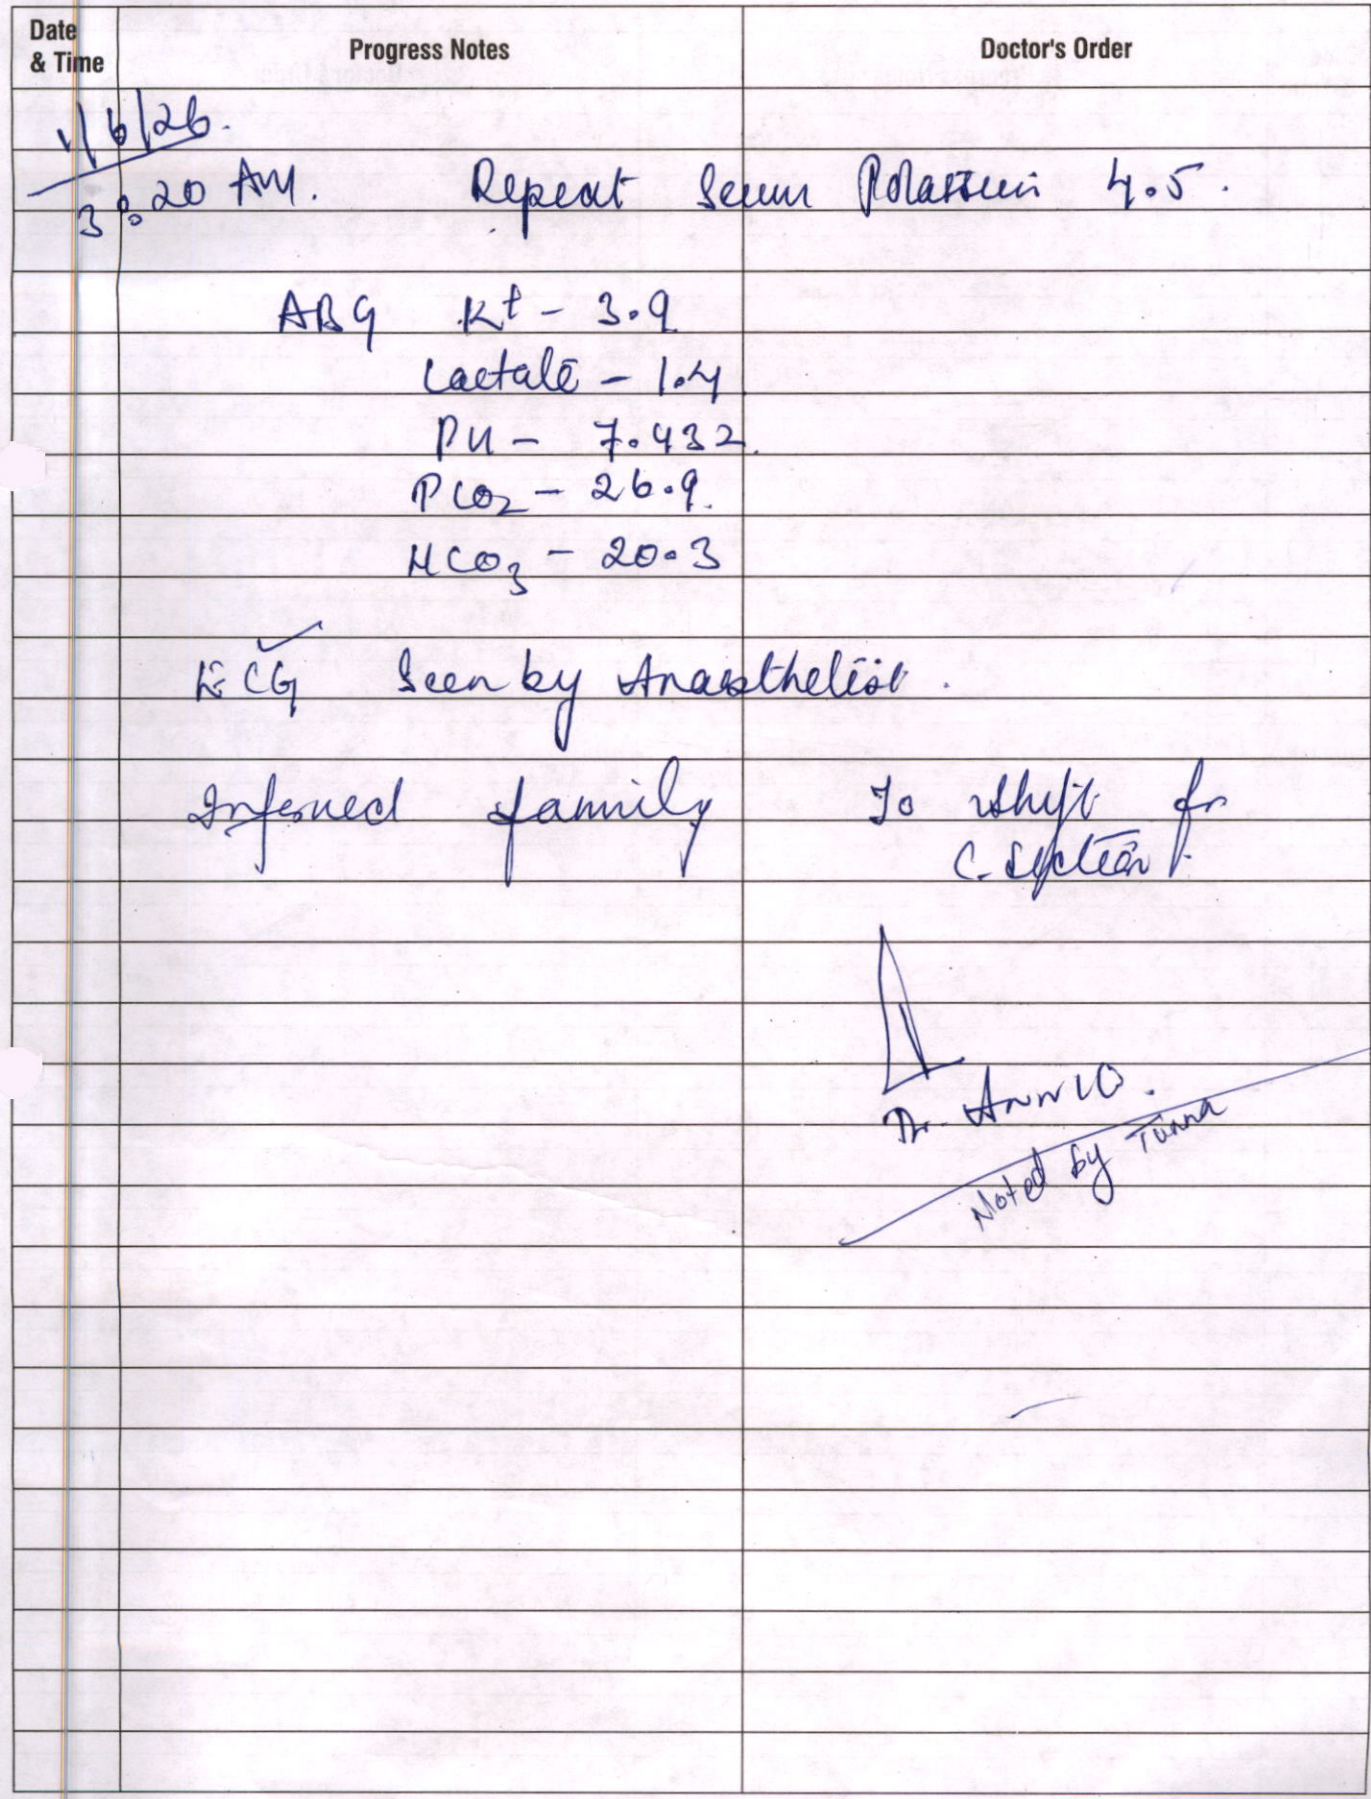 Date
& Time
Progress Notes
Doctor's Order
1/6/26.
3:20 AM. Repeat Serum Potassium 4.5.
ABG K+ - 3.9
Lactate - 1.4
PH - 7.432.
PCO2 - 26.9.
HCO3 - 20.3
ECG ✓ Seen by Anaesthetist.
Informed family To shift for
C. Section.
Dr.
Noted by